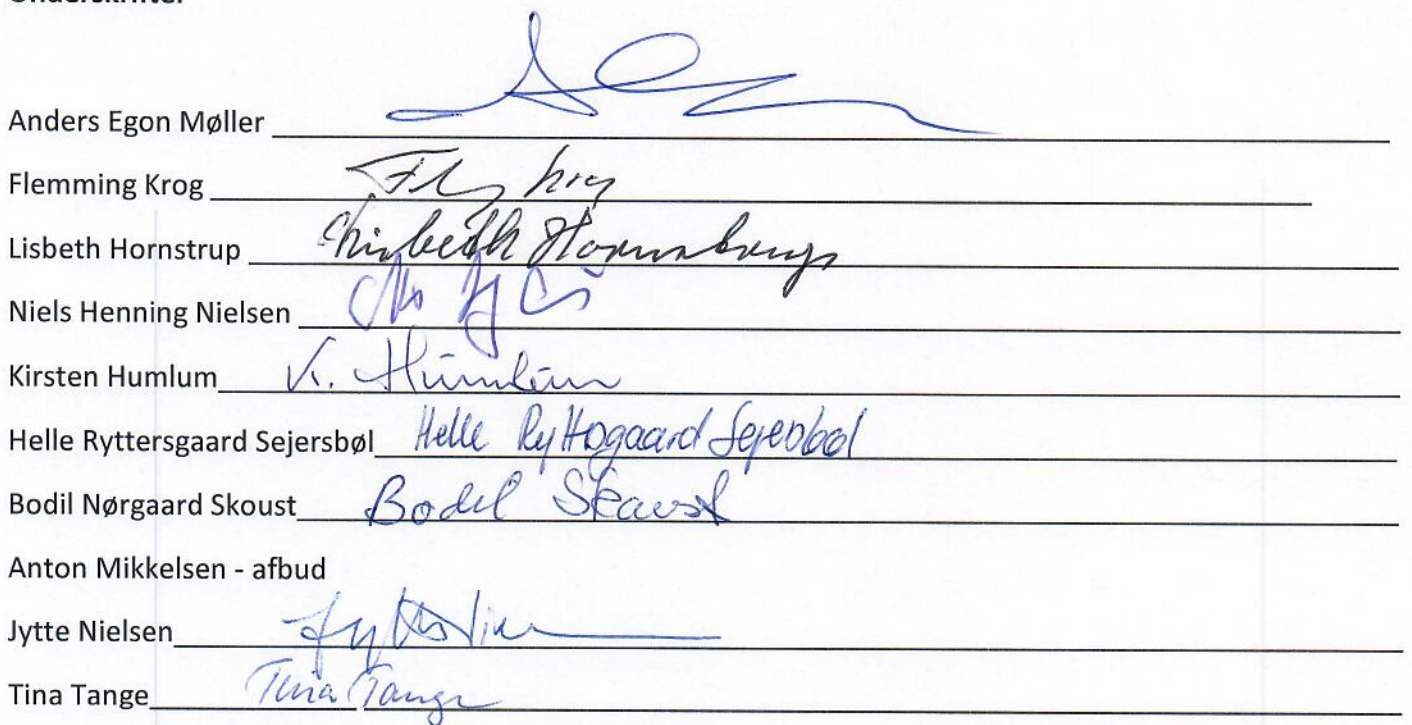 Underskrifter
Anders Egon Møller
Flemming Krog
Lisbeth Hornstrup Lisbeth Hornstrup
Niels Henning Nielsen
Kirsten Humlum K. Humlum
Helle Ryttersgaard Sejersbøl Helle Ryttersgaard Sejersbøl
Bodil Nørgaard Skoust Bodil Skoust
Anton Mikkelsen - afbud
Jytte Nielsen
Tina Tange Tina Tange